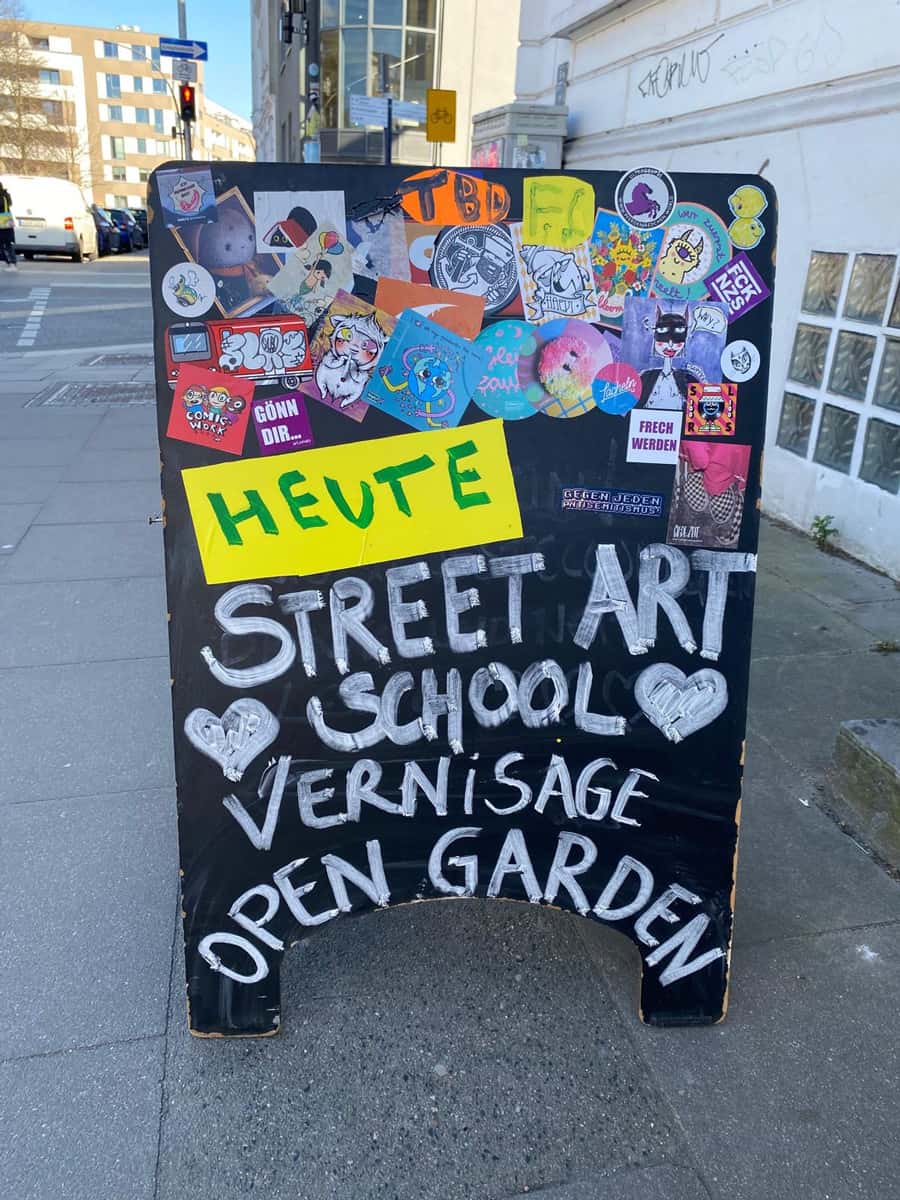 TBD
FC
FCK
NZS
WHY?
HAEDI
bloom
COMIC
WORK
GÖNN
DIR...
Lächeln
FRECH
WERDEN
GEGEN JEDEN
ANTISEMITISMUS!
HEUTE
STREET ART
SCHOOL
VERNISAGE
OPEN GARDEN